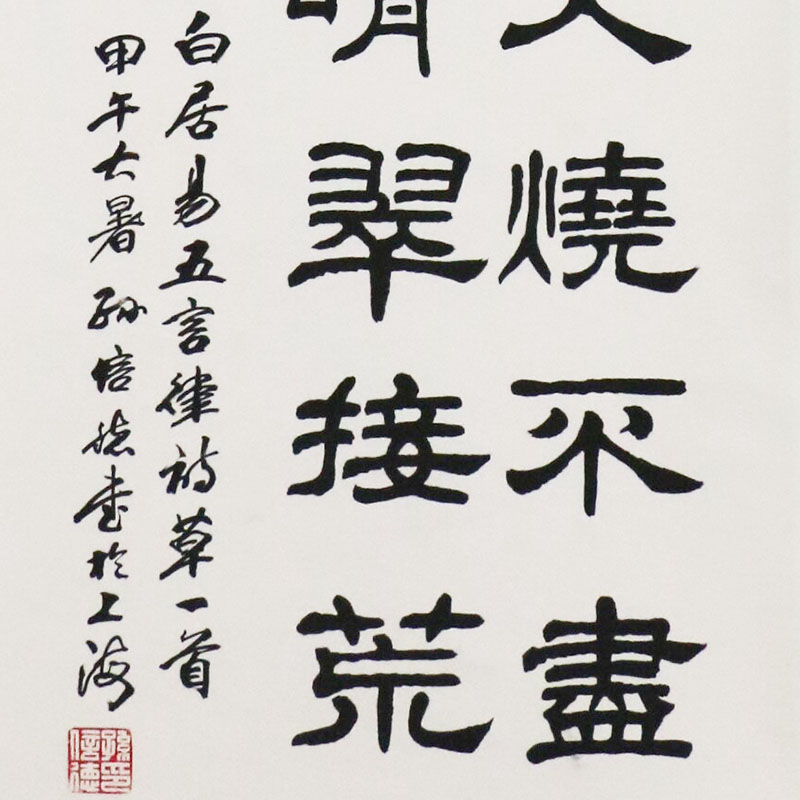 火燒不盡
晴翠接荒
白居易五言律詩草一首
甲午大暑 孫信德書於上海
孫印信德